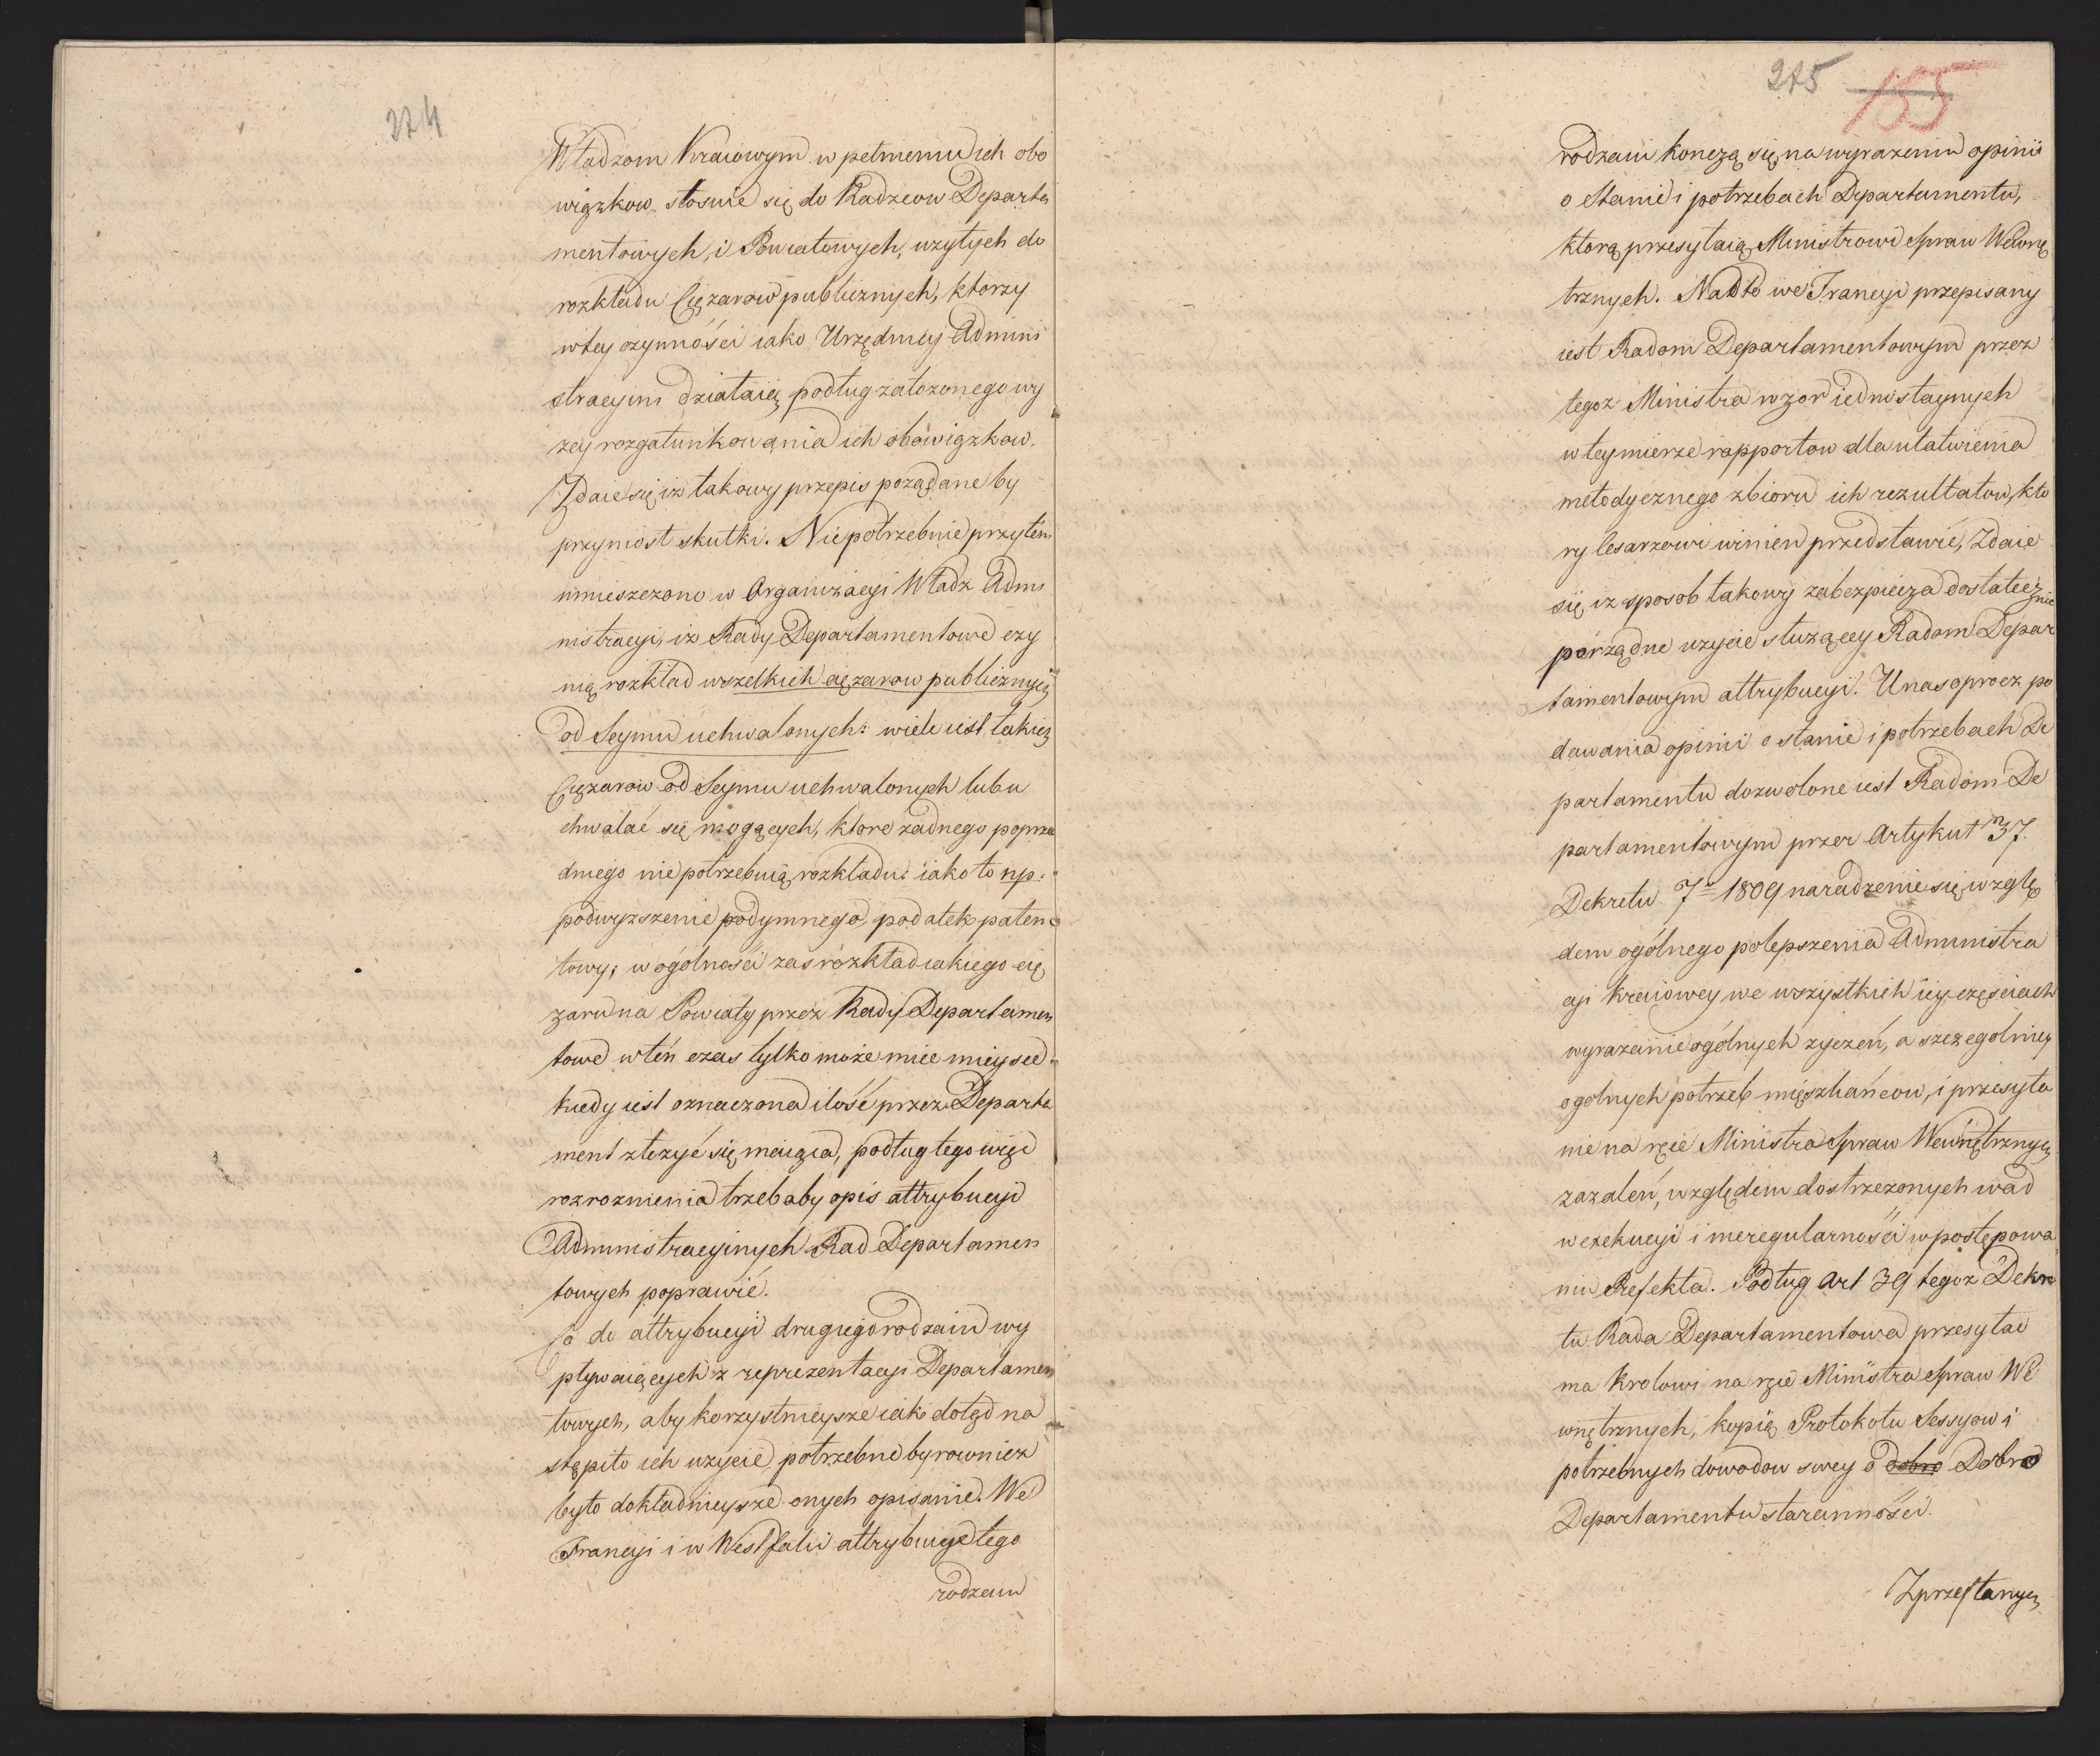 274
Władzom Kraiowym w pełnieniu ich obo
wiązkow, stosuie się do Radzcow Departa
mentowych, i Powiatowych, użytych do
rozkładu Ciężarow publicznych, ktorzy
w tey czynności iako Urzędnicy Admini
stracyini działaią podług założonego wy
żey rozgatunkowania ich obowiązkow.
Zdaie się iż takowy przepis pożądane by
przyniosł skutki. Niepotrzebnie przytém
umieszczono w Organizacyi Władz Admi
nistracyi, iż Rady Departamentowe czy
nią rozkład wszelkich ciężarow publicznych
od Seymu uchwalonych: wiele iest takich
Ciężarow od Seymu uchwalonych lub u
chwalać się mogących, ktore żadnego poprze
dniego nie potrzebuią rozkładu: iako to np:
podwyższenie podymnego, podatek paten
towy; w ogólności zas rozkład iakiego cię
żaru na Powiaty przez Rady Departamen
towe w tén czas tylko może mieć mieysce
kiedy iest oznaczona ilość przez Departa
ment złożyć się maiąca, podług tego więc
rozrożnienia trzebaby opis attrybucyi
Administracyinych Rad Departamen
towych poprawić.
Co do attrybucyi drugiego rodzaiu wy
pływaiących z reprezentacyi Departamen
towych, aby korzystnieysze iak dotąd na
stąpiło ich użycie, potrzebne by rownież
było dokładnieysze onych opisanie. We
Francyi i w Westfalii attrybucye tego
rodzaiu
275 155
rodzaiu kończą się na wyrażeniu opinii
o Stanie i potrzebach Departamentu,
ktorą przesyłaią Ministrowi Spraw Wewnę
trznych. Nadto we Francyi przepisany
iest Radom Departamentowym przez
tegoż Ministra wzor iednostaynych
w tey mierze rapportow dla ułatwienia
metodycznego zbioru ich rezultatow, kto
ry Cesarzowi winien przedstawić, Zdaie
się iż sposob takowy zabezpiecza dostatecznie
porządne użycie służącey Radom Depar
tamentowym attrybucyi. U nas oprocz po
dawania opinii o stanie i potrzebach De
partamentu dozwolone iest Radom De
partamentowym przez Artykuł 37.
Dekretu 7 1809 naradzenie się wzglę
dem ogólnego polepszenia Administra
cyi kraiowey we wszystkich iey częściach
wyrażenie ogólnych życzeń, a szczegolniey
ogolnych potrzeb mięszkańcow, i przesyła
nie na ręce Ministra Spraw Wewnętrznych
zażaleń, względem dostrzeżonych wad
w exekucyi i nieregularności w postępowa
niu Prefekta. Podług Art 39 tegoż Dekre
tu Rada Departamentowa przesyłać
ma Krolowi na ręce Ministra Spraw We
wnętrznych, kopią Protokołu Sessyow i
potrzebnych dowodow swey o dobro Dobro
Departamentu staranności.
Zprzesłanych